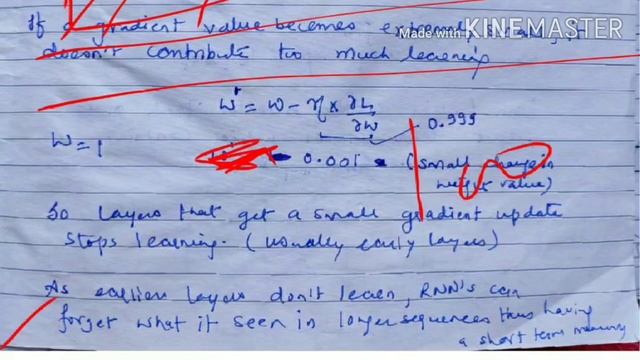 If a gradient value becomes extremely small, it
Made with KINEMASTER
doesn't contribute too much learning
W' = W - η × ∂L/∂W
0.999
W = 1
0.001 (small change in
weight value)
So layers that get a small gradient update
stops learning. (usually early layers)
As earlier layers don't learn, RNN's can
forget what it seen in longer sequences thus having
a short term memory